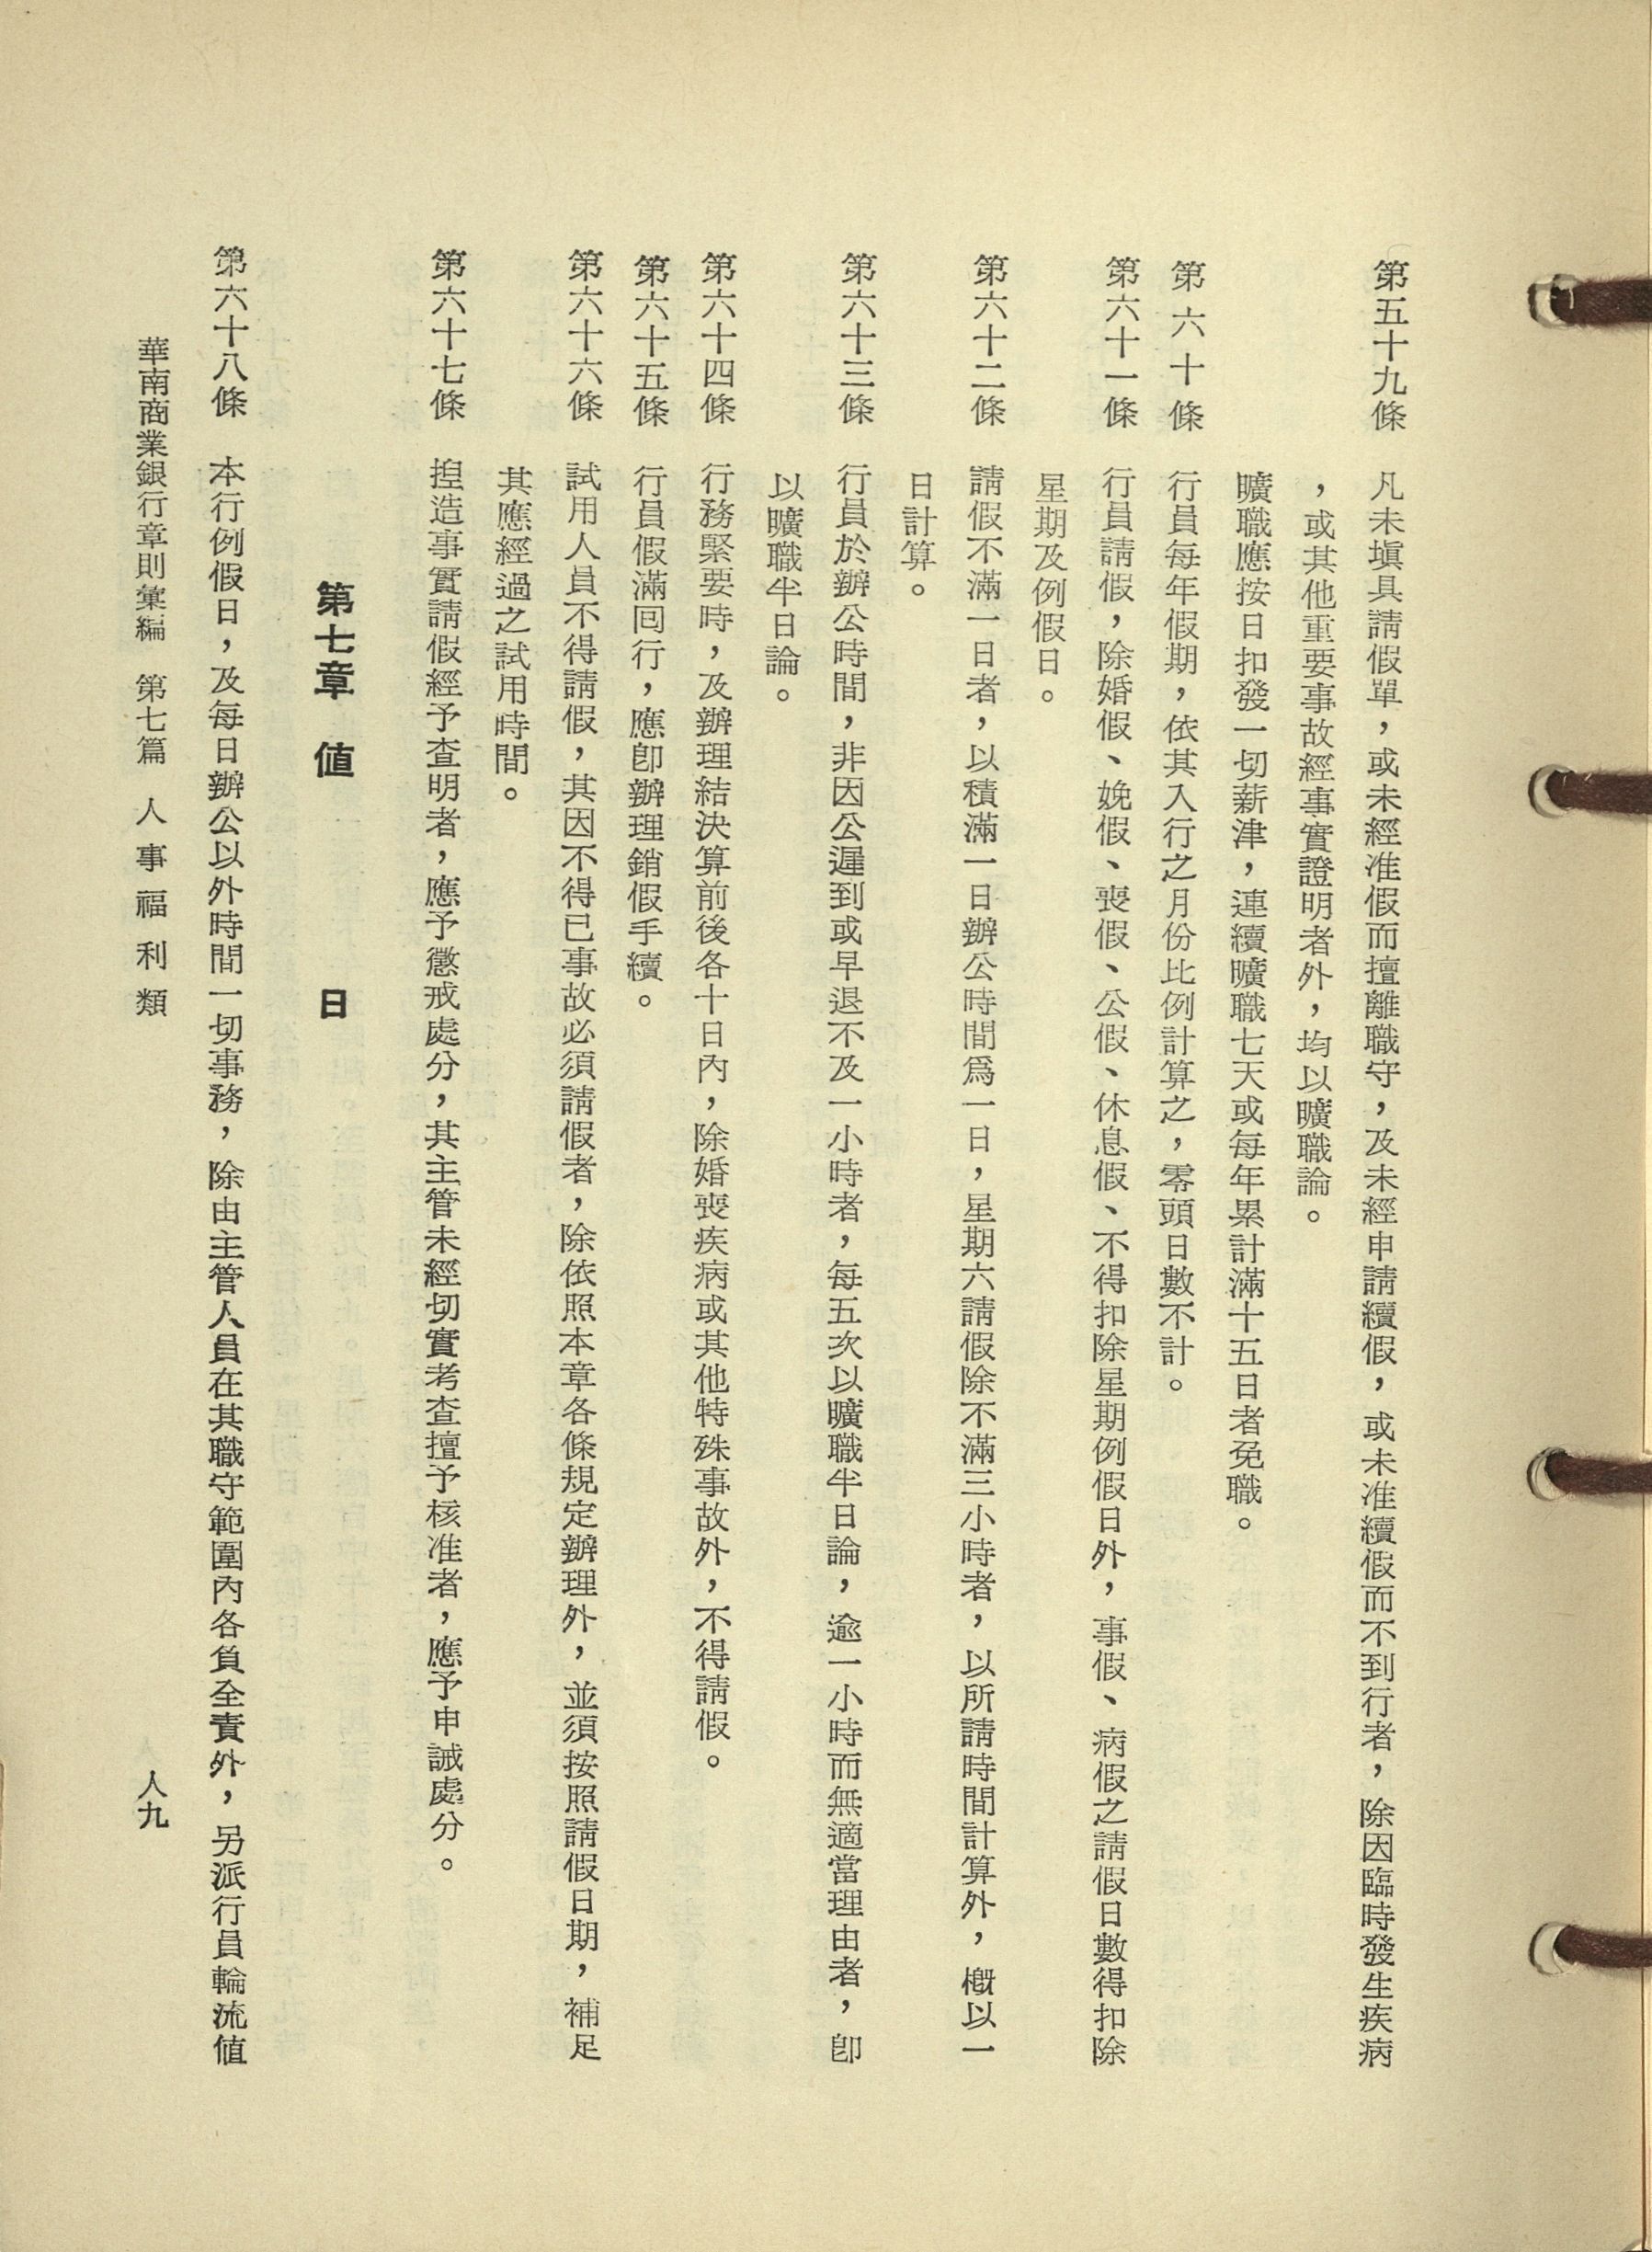 第五十九條　凡未塡具請假單，或未經准假而擅離職守，及未經申請續假，或未准續假而不到行者，除因臨時發生疾病
，或其他重要事故經事實證明者外，均以曠職論。
曠職應按日扣發一切薪津，連續曠職七天或每年累計滿十五日者免職。
第六十條　行員每年假期，依其入行之月份比例計算之，零頭日數不計。
第六十一條　行員請假，除婚假、娩假、喪假、公假、休息假、不得扣除星期例假日外，事假、病假之請假日數得扣除
星期及例假日。
第六十二條　請假不滿一日者，以積滿一日辦公時間爲一日，星期六請假除不滿三小時者，以所請時間計算外，槪以一
日計算。
第六十三條　行員於辦公時間，非因公遲到或早退不及一小時者，每五次以曠職半日論，逾一小時而無適當理由者，卽
以曠職半日論。
第六十四條　行務緊要時，及辦理結決算前後各十日內，除婚喪疾病或其他特殊事故外，不得請假。
第六十五條　行員假滿囘行，應卽辦理銷假手續。
第六十六條　試用人員不得請假，其因不得已事故必須請假者，除依照本章各條規定辦理外，並須按照請假日期，補足
其應經過之試用時間。
第六十七條　揑造事實請假經予查明者，應予懲戒處分，其主管未經切實考查擅予核准者，應予申誡處分。
第七章　値　日
第六十八條　本行例假日，及每日辦公以外時間一切事務，除由主管人員在其職守範圍內各負全責外，另派行員輪流値
華南商業銀行章則彙編　第七篇　人事福利類　人九